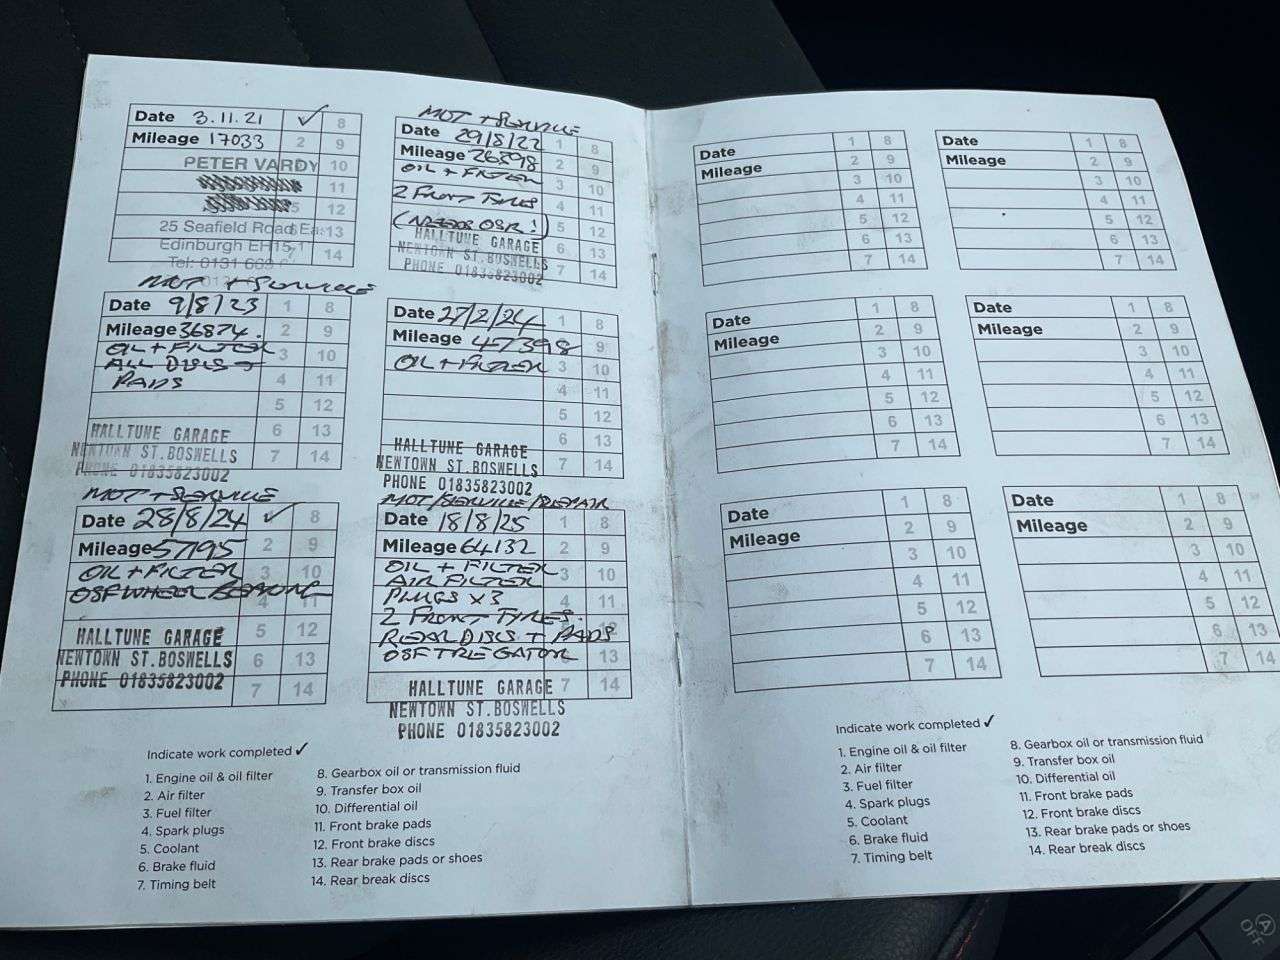 Date 3.11.21 ✓ 8
Mileage 17033 2 9
PETER VARDY 10
11
5 12
25 Seafield Road Ea 13
Edinburgh EH15 1
7 14
Tel: 0131 669
MOT + SERVICE
Date 29/8/22 1 8
Mileage 26598 2 9
OIL + FILTER 3 10
2 FRONT TYRES 4 11
(NEEDS OSR!) 5 12
HALLTUNE GARAGE 6 13
NEWTOWN ST.BOSWELLS
PHONE 01835823002 7 14
MOT + SERVICE
Date 9/8/23 1 8
Mileage 36874. 2 9
OIL + FILTER 3 10
ALL DISCS +
PADS 4 11
5 12
HALLTUNE GARAGE 6 13
NEWTOWN ST.BOSWELLS 7 14
PHONE 01835823002
Date 27/2/24 1 8
Mileage 47398 9
OIL + FILTER 3 10
4 11
5 12
HALLTUNE GARAGE 6 13
NEWTOWN ST.BOSWELLS 7 14
PHONE 01835823002
MOT + SERVICE
Date 28/8/24 ✓ 8
Mileage 57195 2 9
OIL + FILTER 3 10
OSF WHEEL BEARING 4 11
HALLTUNE GARAGE 5 12
NEWTOWN ST.BOSWELLS 6 13
PHONE 01835823002 7 14
MOT/SERVICE/REPAIR
Date 18/8/25 1 8
Mileage 64132 2 9
OIL + FILTER 3 10
AIR FILTER
PLUGS X3 4 11
2 FRONT TYRES.
REAR DISCS + PADS 12
OSF TRE GATOR 13
HALLTUNE GARAGE 7 14
NEWTOWN ST.BOSWELLS
PHONE 01835823002
Indicate work completed ✓
1. Engine oil & oil filter
2. Air filter
3. Fuel filter
4. Spark plugs
5. Coolant
6. Brake fluid
7. Timing belt
8. Gearbox oil or transmission fluid
9. Transfer box oil
10. Differential oil
11. Front brake pads
12. Front brake discs
13. Rear brake pads or shoes
14. Rear break discs
Date 1 8
Mileage 2 9
3 10
4 11
5 12
6 13
7 14
Date 1 8
Mileage 2 9
3 10
4 11
5 12
6 13
7 14
Date 1 8
Mileage 2 9
3 10
4 11
5 12
6 13
7 14
Date 1 8
Mileage 2 9
3 10
4 11
5 12
6 13
7 14
Date 1 8
Mileage 2 9
3 10
4 11
5 12
6 13
7 14
Date 1 8
Mileage 2 9
3 10
4 11
5 12
6 13
7 14
Indicate work completed ✓
1. Engine oil & oil filter
2. Air filter
3. Fuel filter
4. Spark plugs
5. Coolant
6. Brake fluid
7. Timing belt
8. Gearbox oil or transmission fluid
9. Transfer box oil
10. Differential oil
11. Front brake pads
12. Front brake discs
13. Rear brake pads or shoes
14. Rear break discs
A
OFF